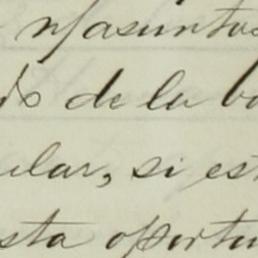 asuntos
de la
ular, si es
sta oportu